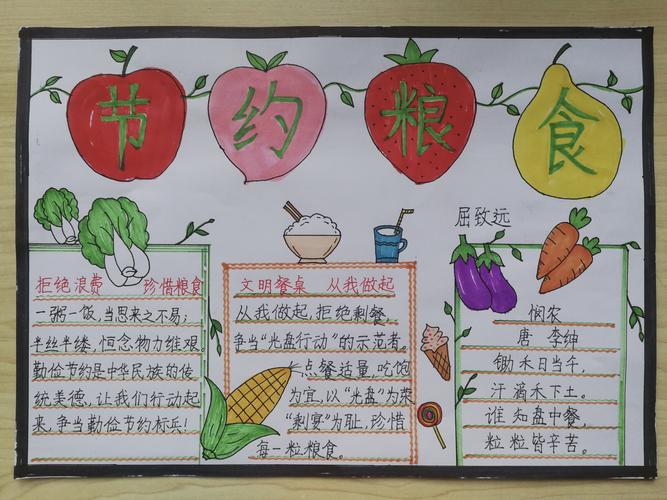 节约粮食
屈致远
拒绝浪费 珍惜粮食
一粥一饭，当思来之不易；
半丝半缕，恒念物力维艰。
勤俭节约是中华民族的传
统美德，让我们行动起
来，争当勤俭节约标兵！
文明餐桌 从我做起
从我做起，拒绝剩餐，
争当“光盘行动”的示范者。
点餐适量，吃饱
为宜，以“光盘”为荣
“剩宴”为耻，珍惜
每一粒粮食。
悯农
唐 李绅
锄禾日当午，
汗滴禾下土。
谁知盘中餐，
粒粒皆辛苦。